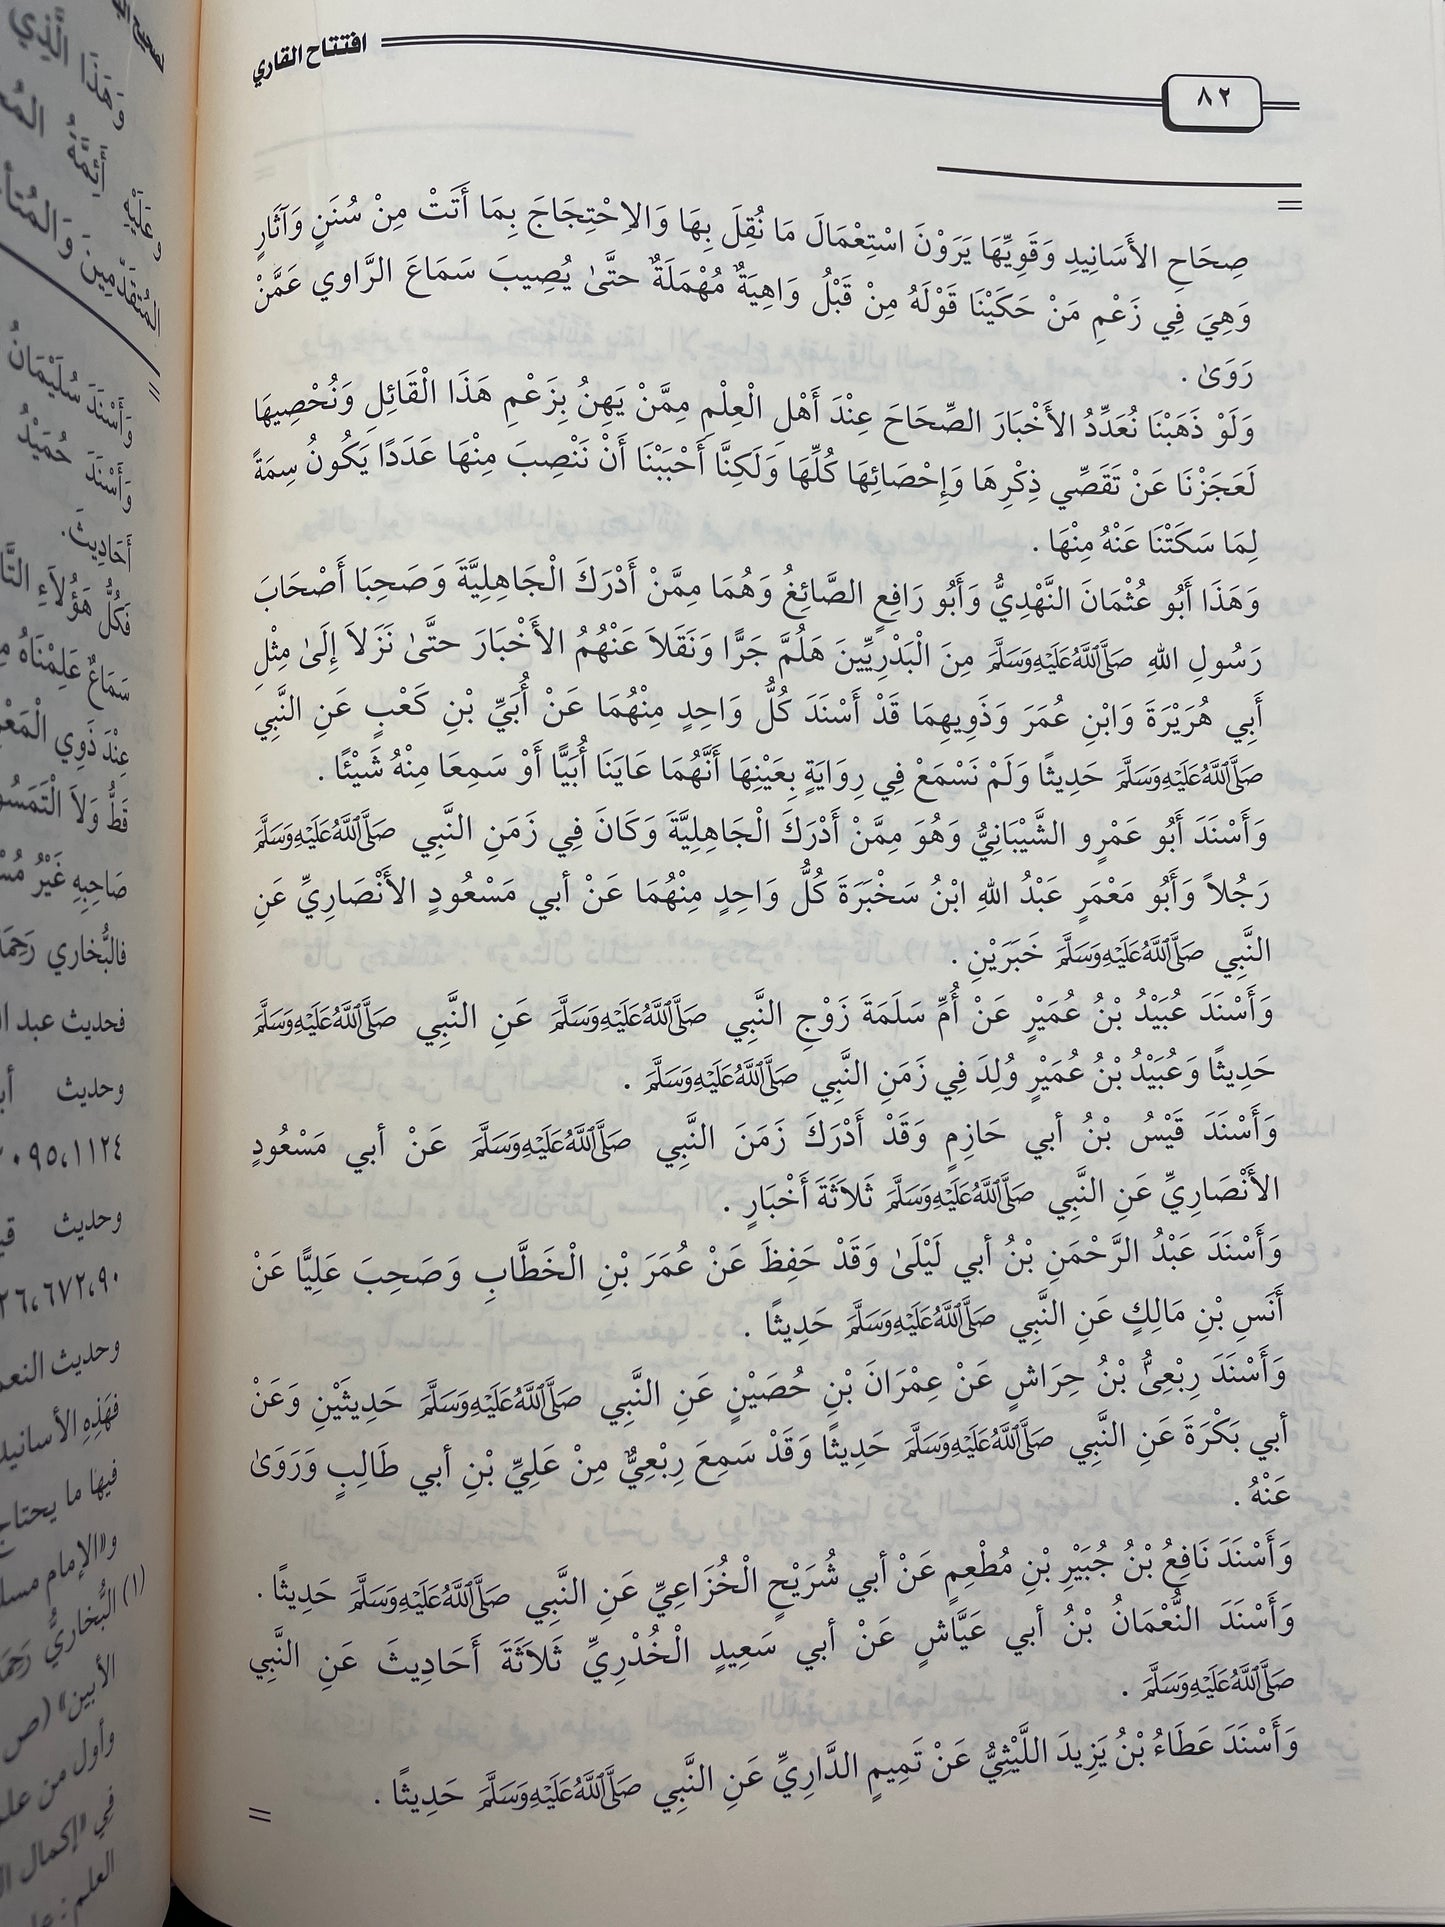 افتتاح القاري
٨٢
=
صِحَاحِ الأَسَانِيدِ وَقَوِيِّهَا يَرَوْنَ اسْتِعْمَالَ مَا نُقِلَ بِهَا وَالاِحْتِجَاجَ بِمَا أَتَتْ مِنْ سُنَنٍ وَآثَارٍ
وَهِيَ فِي زَعْمِ مَنْ حَكَيْنَا قَوْلَهُ مِنْ قَبْلُ وَاهِيَةٌ مُهْمَلَةٌ حتَّىٰ يُصِيبَ سَمَاعَ الرَّاوي عَمَّنْ
رَوَىٰ .
وَلَوْ ذَهَبْنَا نُعَدِّدُ الأَخْبَارَ الصِّحَاحَ عِنْدَ أَهْلِ الْعِلْمِ مِمَّنْ يَهِنُ بِزَعْمِ هَذَا الْقَائِلِ وَنُحْصِيهَا
لَعَجَزْنَا عَنْ تَقَصِّي ذِكْرِهَا وَإِحْصَائِهَا كُلِّهَا وَلَكِنَّا أَحْبَبْنَا أَنْ نَنْصِبَ مِنْهَا عَدَدًا يَكُونُ سِمَةً
لِمَا سَكَتْنَا عَنْهُ مِنْهَا .
وَهَذَا أَبُو عُثْمَانَ النَّهْدِيُّ وَأَبُو رَافِعٍ الصَّائِغُ وَهُمَا مِمَّنْ أَدْرَكَ الْجَاهِلِيَّةَ وَصَحِبَا أَصْحَابَ
رَسُولِ اللهِ صَلَّاللَّهُ عَلَيْهِ وَسَلَّمَ مِنَ الْبَدْرِيِّينَ هَلُمَّ جَرًّا وَنَقَلاَ عَنْهُمُ الأَخْبَارَ حتَّىٰ نَزَلاَ إِلَىٰ مِثْلِ
أَبِي هُرَيْرَةَ وَابْنِ عُمَرَ وَذَوِيهِمَا قَدْ أَسْنَدَ كُلُّ وَاحِدٍ مِنْهُمَا عَنْ أُبَيِّ بْنِ كَعْبٍ عَنِ النَّبِي
صَلَّاللَّهُ عَلَيْهِ وَسَلَّمَ حَدِيثًا وَلَمْ نَسْمَعْ فِي رِوَايَةٍ بِعَيْنِهَا أَنَّهُمَا عَايَنَا أُبَيًّا أَوْ سَمِعَا مِنْهُ شَيْئًا .
وَأَسْنَدَ أَبُو عَمْرٍو الشَّيْبَانِيُّ وَهُوَ مِمَّنْ أَدْرَكَ الْجَاهِلِيَّةَ وَكَانَ فِي زَمَنِ النَّبِي صَلَّاللَّهُ عَلَيْهِ وَسَلَّمَ
رَجُلاً وَأَبُو مَعْمَرٍ عَبْدُ اللهِ ابْنُ سَخْبَرَةَ كُلُّ وَاحِدٍ مِنْهُمَا عَنْ أبي مَسْعُودٍ الأَنْصَارِيِّ عَنِ
النَّبِي صَلَّاللَّهُ عَلَيْهِ وَسَلَّمَ خَبَرَيْنِ .
وَأَسْنَدَ عُبَيْدُ بْنُ عُمَيْرٍ عَنْ أُمِّ سَلَمَةَ زَوْجِ النَّبِي صَلَّاللَّهُ عَلَيْهِ وَسَلَّمَ عَنِ النَّبِي صَلَّاللَّهُ عَلَيْهِ وَسَلَّمَ
حَدِيثًا وَعُبَيْدُ بْنُ عُمَيْرٍ وُلِدَ فِي زَمَنِ النَّبِي صَلَّاللَّهُ عَلَيْهِ وَسَلَّمَ .
وَأَسْنَدَ قَيْسُ بْنُ أبي حَازِمٍ وَقَدْ أَدْرَكَ زَمَنَ النَّبِي صَلَّاللَّهُ عَلَيْهِ وَسَلَّمَ عَنْ أبي مَسْعُودٍ
الأَنْصَارِيِّ عَنِ النَّبِي صَلَّاللَّهُ عَلَيْهِ وَسَلَّمَ ثَلاَثَةَ أَخْبَارٍ .
وَأَسْنَدَ عَبْدُ الرَّحْمَنِ بْنُ أبي لَيْلَىٰ وَقَدْ حَفِظَ عَنْ عُمَرَ بْنِ الْخَطَّابِ وَصَحِبَ عَلِيًّا عَنْ
أَنَسِ بْنِ مَالِكٍ عَنِ النَّبِي صَلَّاللَّهُ عَلَيْهِ وَسَلَّمَ حَدِيثًا .
وَأَسْنَدَ رِبْعِىُّ بْنُ حِرَاشٍ عَنْ عِمْرَانَ بْنِ حُصَيْنٍ عَنِ النَّبِي صَلَّاللَّهُ عَلَيْهِ وَسَلَّمَ حَدِيثَيْنِ وَعَنْ
أبي بَكْرَةَ عَنِ النَّبِي صَلَّاللَّهُ عَلَيْهِ وَسَلَّمَ حَدِيثًا وَقَدْ سَمِعَ رِبْعِيٌّ مِنْ عَلِيِّ بْنِ أبي طَالِبٍ وَرَوَىٰ
عَنْهُ .
وَأَسْنَدَ نَافِعُ بْنُ جُبَيْرِ بْنِ مُطْعِمٍ عَنْ أبي شُرَيْحٍ الْخُزَاعِيِّ عَنِ النَّبِي صَلَّاللَّهُ عَلَيْهِ وَسَلَّمَ حَدِيثًا .
وَأَسْنَدَ النُّعْمَانُ بْنُ أبي عَيَّاشٍ عَنْ أبي سَعِيدٍ الْخُدْرِيِّ ثَلاَثَةَ أَحَادِيثَ عَنِ النَّبِي
صَلَّاللَّهُ عَلَيْهِ وَسَلَّمَ .
وَأَسْنَدَ عَطَاءُ بْنُ يَزِيدَ اللَّيْثِيُّ عَنْ تَمِيمٍ الدَّارِيِّ عَنِ النَّبِي صَلَّاللَّهُ عَلَيْهِ وَسَلَّمَ حَدِيثًا .
=
وَهَذَا الَّذِي
أَئِمَّةُ
وَعَلَيْهِ
المُتَقَدِّمِينَ
=
وَأَسْنَدَ سُلَيْمَانُ
وَأَسْنَدَ حُمَيْدُ
أَحَادِيثَ.
فَكُلُّ هَؤُلاَءِ
سَمَاعٌ عَلِمْنَاهُ
عِنْدَ ذَوِي
قَطُّ وَلاَ
صَاحِبِهِ غَيْرُ
فالبُخاري
فحديث عبد
وحديث
وحديث
وحديث
فهَذِهِ
فيها ما يحتاج
و«الإمام
(١) البُخاريُّ
الأبين» (ص
وأول من
في «إكمال
العلم: